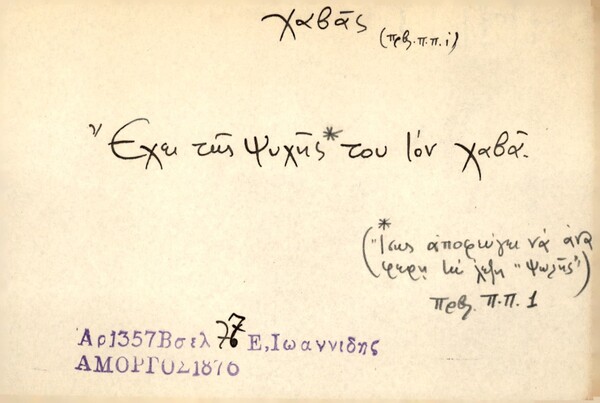 χαβᾶς
(πρβ. π.π. 1)
Ἔχει τῆς ψυχῆς* του τὸν χαβᾶ.
*
(Ἴσως ἀποφεύγει νὰ ἀνα
φέρῃ τὴ λέξη "ψωλῆς")
πρβ. π.π. 1
Αρ1357Βσελ 77 Ε,Ιωαννιδης
ΑΜΟΡΓΟΣ1876